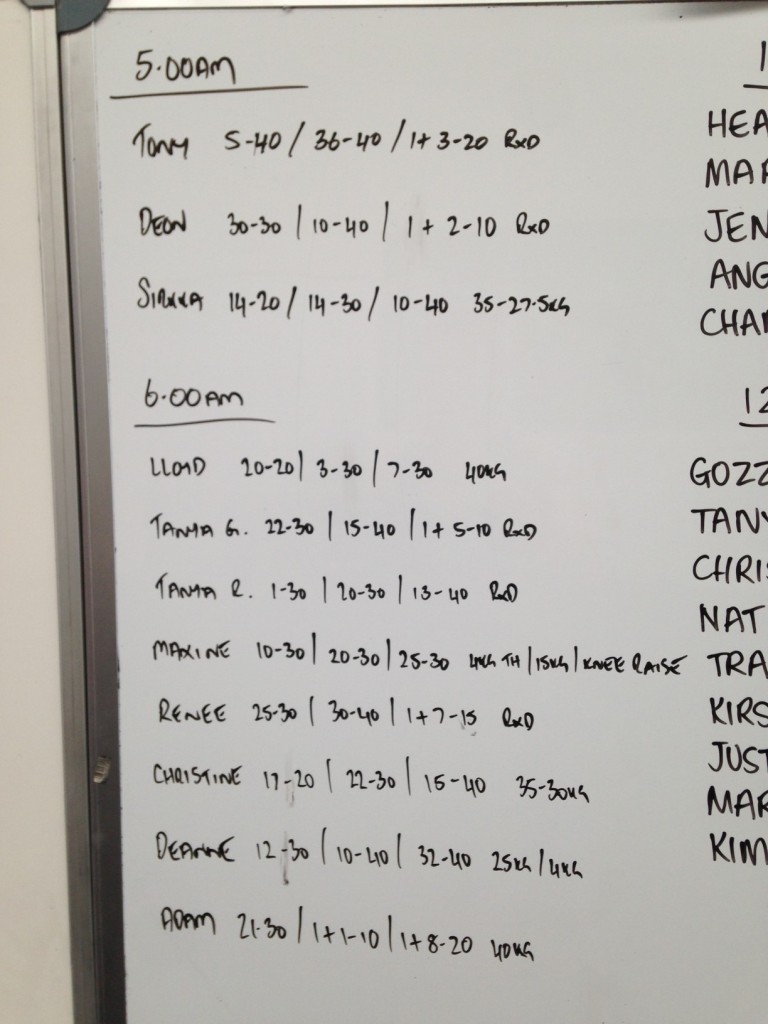 5.00AM
TONY 5-40 / 36-40 / 1+ 3-20 RxD
DEON 30-30 | 10-40 | 1 + 2-10 RxD
SIRKKA 14-20 / 14-30 / 10-40 35-27.5KG
6.00AM
LLOYD 20-20 | 3-30 | 7-30 40KG
TANYA G. 22-30 | 15-40 | 1+ 5-10 RxD
TANYA R. 1-30 | 20-30 | 13-40 RxD
MAXINE 10-30 | 20-30 | 25-30 4KG TH | 15KG | KNEE RAISE
RENEE 25-30 | 30-40 | 1+7-15 RxD
CHRISTINE 17-20 | 22-30 | 15-40 35-30KG
DEANNE 12-30 | 10-40 | 32-40 25KG / 4KG
ADAM 21-30 | 1+1-10 | 1+8-20 40KG
1
HEA
MAR
JEN
ANG
CHAR
12
GOZZ
TANY
CHRIS
NAT
TRA
KIRS
JUST
MAR
KIM